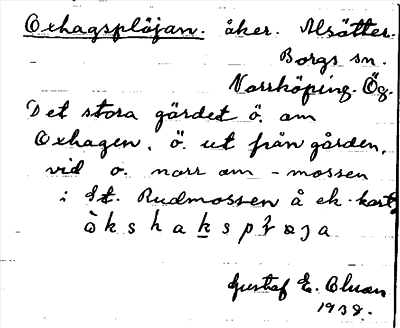 Oxhagsplöjan. åker. Alsätter.
Borgs sn.
Norrköping. Ög.
Det stora gärdet ö. om
Oxhagen, ö. ut från gården,
vid o. norr om -mossen
i St. Rudmossen å ek. karta
Gustaf E. Oluan
1938.